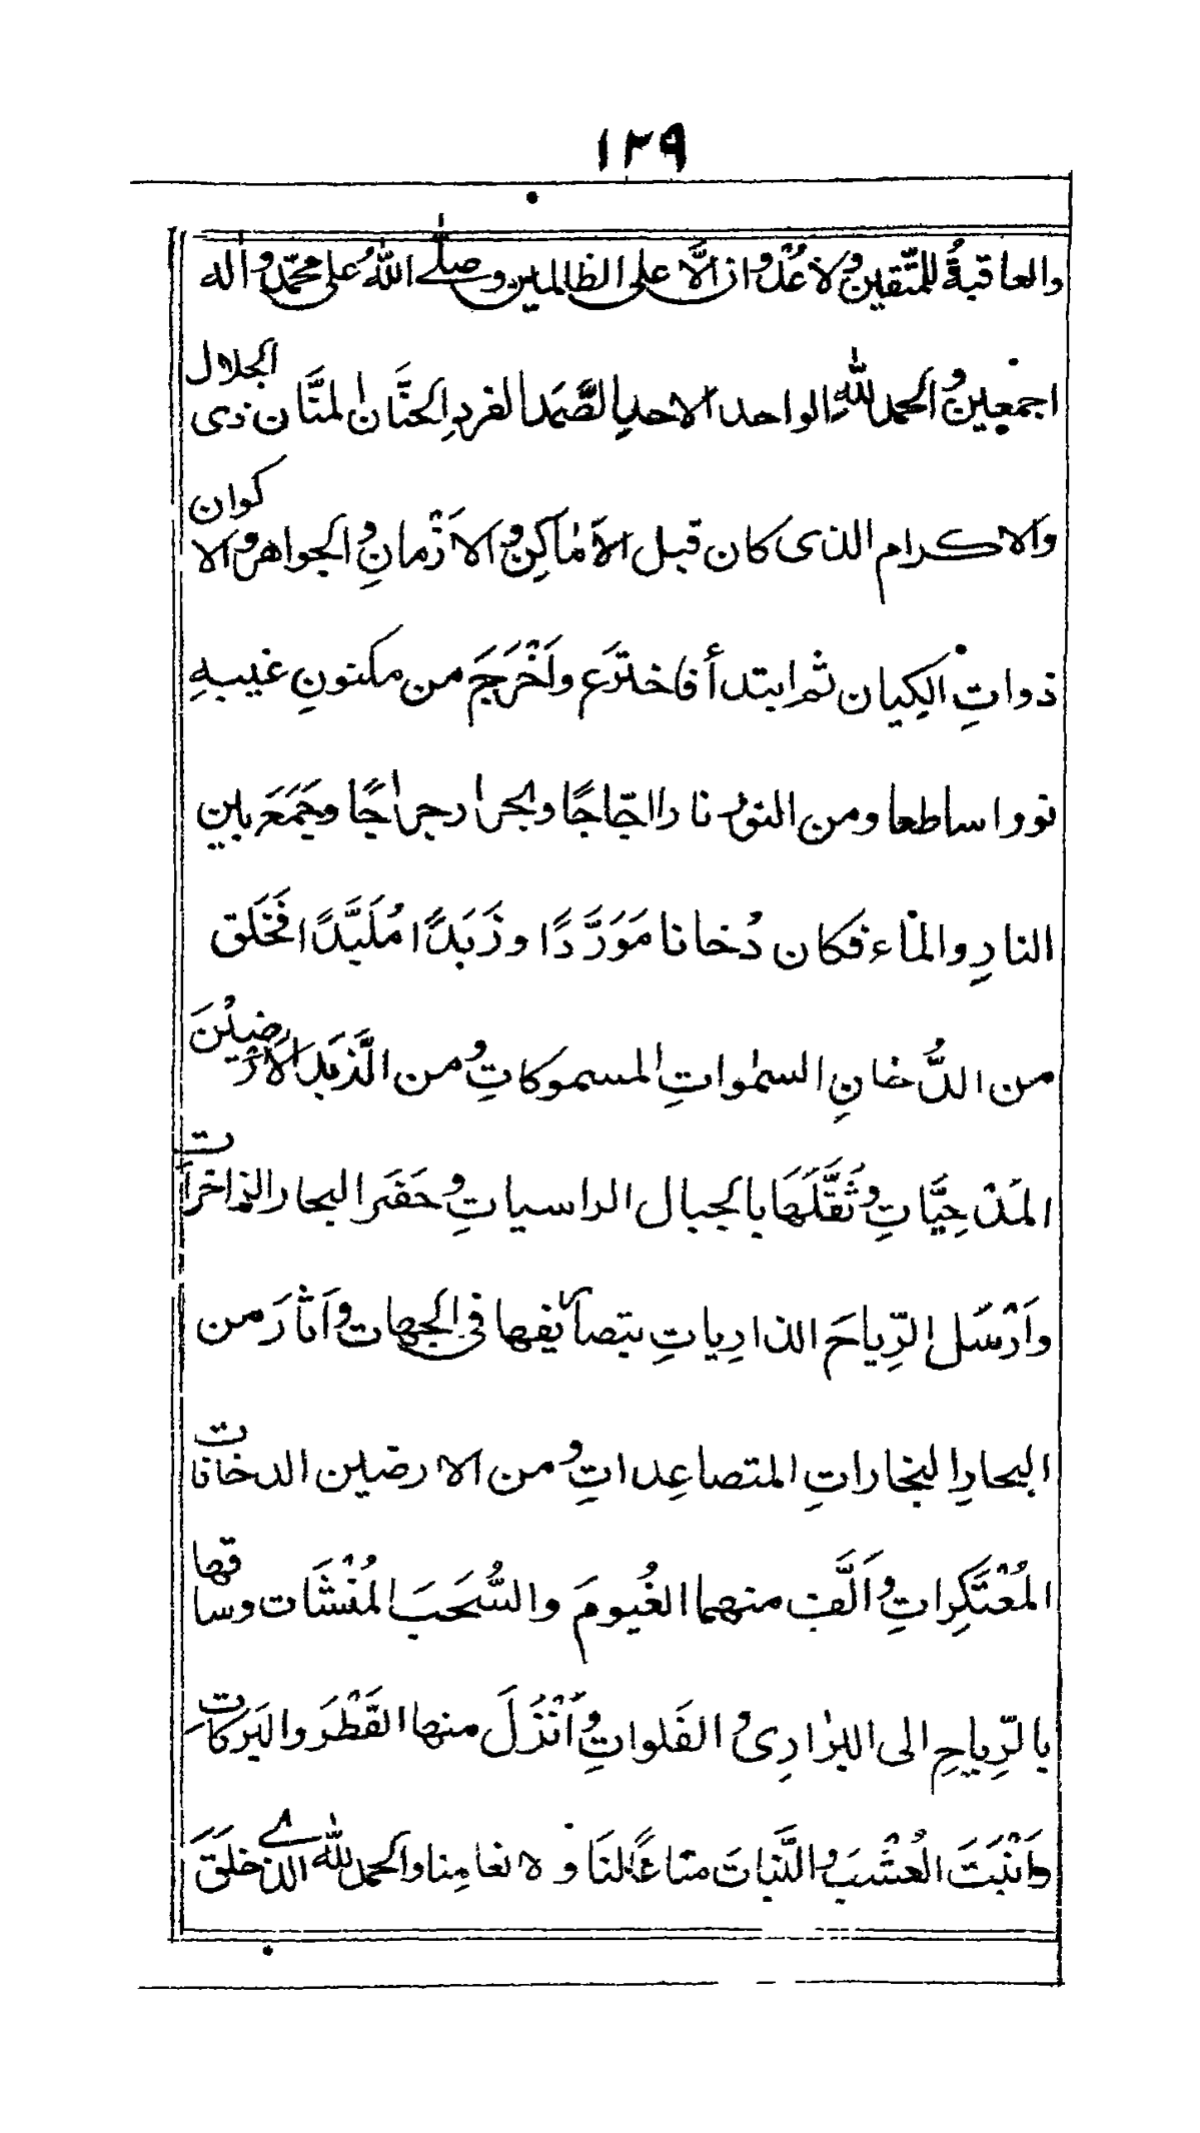 ١٢٩
والعاقبةُ للمتّقين ولاعُدْوان الَّا على الظالمين وصلّى اللّٰهُ على محمّد وآله
اجمْعينَ والحمد للّٰهِ الواحد الاحدِ الصَّمَد الفردِ الحنَّان المنَّان ذى الجلال
والاكرام الذى كان قبل الاَماكِنِ والاَزْمانِ والجواهر والاكوان
ذواتِ الكِيان ثم ابتدأ فاخترَع واَخْرَجَ من مكنونِ غيبهِ
نورا ساطعا ومن النورِ نارا اجّاجًا وبحرا رجراجًا وجَمَعَ بين
النارِ والماء فكان دُخانا مَوَرَّدًا وزَبَدًا مُلَبَّدًا فَخَلَق
من الدُّخانِ السمٰواتِ المسموكاتِ ومن الزَّبَد الاَرْضيْنَ
المَدْحِيَّاتِ وثَقَّلَهَا بالجبال الراسياتِ وحَفَر البحار الزاخرات
واَرْسَل الرِّياحَ الذارِياتِ بتصاريفها فى الجهات واَثارَ من
البحارِ البخاراتِ المتصاعِداتِ ومن الارضين الدخانات
المُعْتَكِراتِ واَلَّف منهما الغُيومَ والسُّحَبَ المُنْشَات وساقها
بالرِّياحِ الى البرارِى والفَلواتِ واَنْزَلَ منها القَطْرَ والبَركات
واَنْبَتَ العُشْبَ والنَّباتَ متاعًا لنَا ولانعامِنا والحمد للّٰه الذى خلَقَ